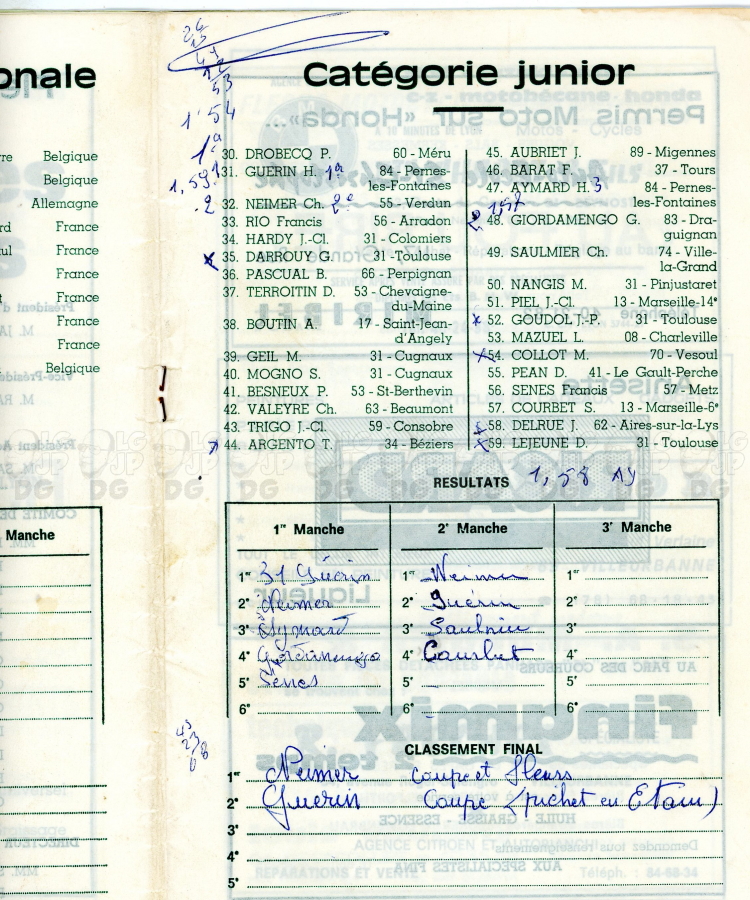 onale
Catégorie junior
53
1'54
1ª
1,591
2
re Belgique
Belgique
Allemagne
rd France
ul France
France
t France
France
France
Belgique
30. DROBECQ P. 60 - Méru
31. GUERIN H. 1ª 84 - Pernes-
les-Fontaines
32. NEIMER Ch. 2ª 55 - Verdun
33. RIO Francis 56 - Arradon
34. HARDY J.-Cl. 31 - Colomiers
35. DARROUY G. 31 - Toulouse
36. PASCUAL B. 66 - Perpignan
37. TERROITIN D. 53 - Chevaigne-
du-Maine
38. BOUTIN A. 17 - Saint-Jean-
d'Angely
39. GEIL M. 31 - Cugnaux
40. MOGNO S. 31 - Cugnaux
41. BESNEUX P. 53 - St-Berthevin
42. VALEYRE Ch. 63 - Beaumont
43. TRIGO J.-Cl. 59 - Consobre
44. ARGENTO T. 34 - Béziers
45. AUBRIET J. 89 - Migennes
46. BARAT F. 37 - Tours
47. AYMARD H. 3 84 - Pernes-
les-Fontaines
48. GIORDAMENGO G. 83 - Dra-
guignan
49. SAULMIER Ch. 74 - Ville-
la-Grand
50. NANGIS M. 31 - Pinjustaret
51. PIEL J.-Cl. 13 - Marseille-14ᵉ
52. GOUDOL J.-P. 31 - Toulouse
53. MAZUEL L. 08 - Charleville
54. COLLOT M. 70 - Vesoul
55. PEAN D. 41 - Le Gault-Perche
56. SENES Francis 57 - Metz
57. COURBET S. 13 - Marseille-6ᵉ
58. DELRUE J. 62 - Aires-sur-la-Lys
59. LEJEUNE D. 31 - Toulouse
RESULTATS 1,58
Manche
1ʳᵉ Manche 2ᵉ Manche 3ᵉ Manche
1ᵉʳ 31 Guérin 1ᵉʳ Neimer 1ᵉʳ
2ᵉ Neimer 2ᵉ Guérin 2ᵉ
3ᵉ Aymard 3ᵉ Saulnier 3ᵉ
4ᵉ Giordanengo 4ᵉ Courbet 4ᵉ
5ᵉ Senes 5ᵉ 5ᵉ
6ᵉ 6ᵉ 6ᵉ
CLASSEMENT FINAL
1ᵉʳ Neimer coupe et fleurs
2ᵉ Guerin Coupe (pichet en Etain)
3ᵉ
4ᵉ
5ᵉ